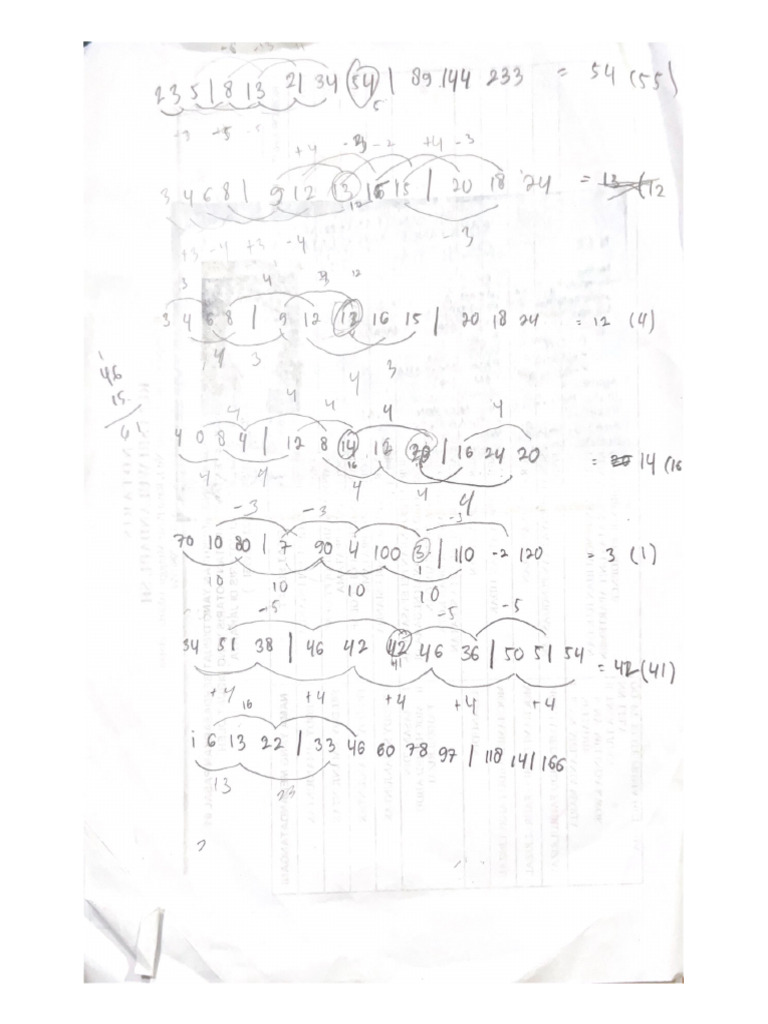 2 3 5 | 8 13 21 34 54 | 89 144 233 = 54 (55)
-3 +5 -5
+4 -2 +4 -3
3 4 6 8 | 9 12 13 16 15 | 20 18 24 = 13 (12
12
+3 -4 +3 -4 -3
3 4 12
3 4 6 8 | 9 12 13 16 15 | 20 18 24 = 12 (4)
4 3 4 3
46
15
61
4 4 4 4 4
4 0 8 4 | 12 8 14 12 20 | 16 24 20 = 14 (16
16
4 4 4 4 4
-3 -3 -3
70 10 80 | 7 90 4 100 3 | 110 -2 120 = 3 (1)
1
10 10 10 10
-5 -5 -5
34 51 38 | 46 42 42 46 36 | 50 51 54 = 42 (41)
41
+4 +4 +4 +4 +4
16
1 6 13 22 | 33 46 60 78 97 | 118 141 166
13 23
2